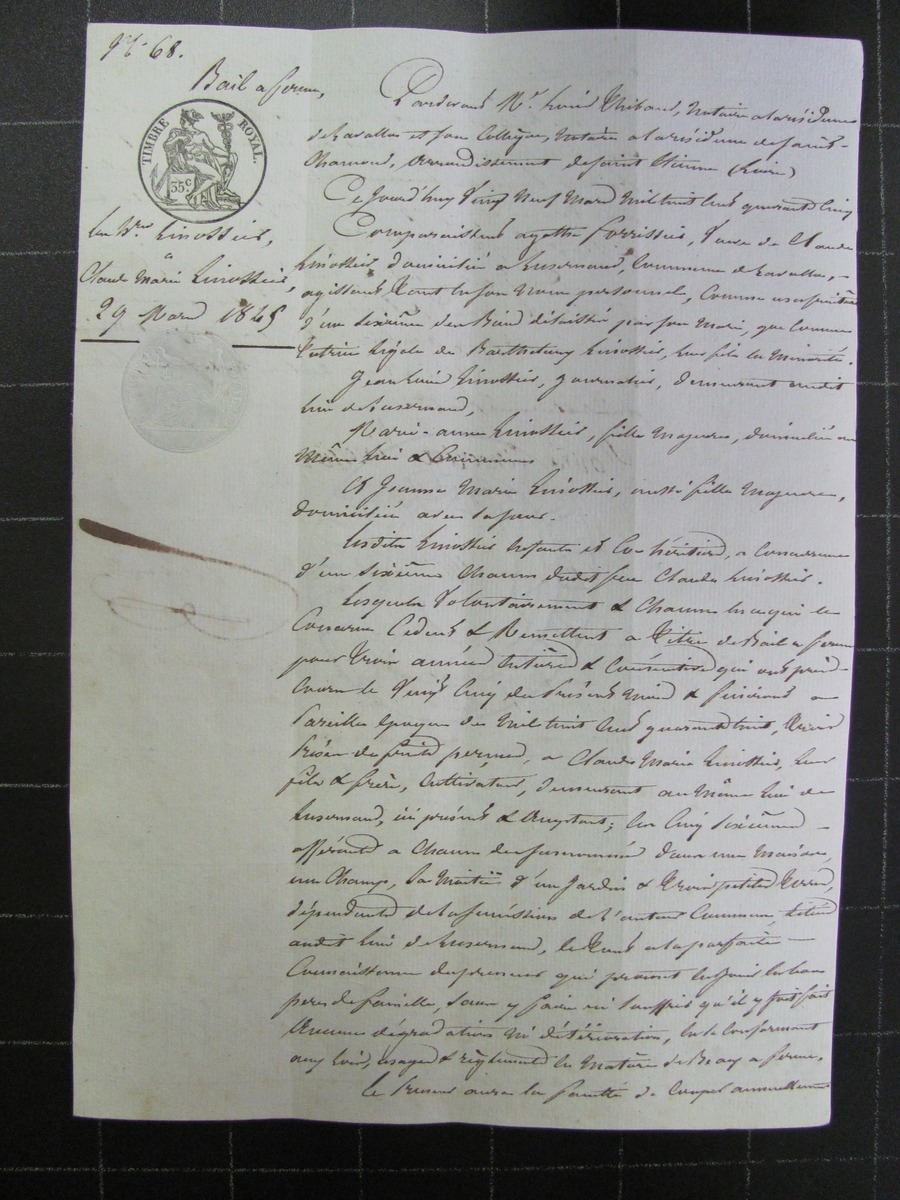 N.° 68.
Bail a ferme,
TIMBRE ROYAL.
35 c
les Linossier,
a
Claude Marie Linossier,
29 Mars 1845
Pardevant M.e Louis Thibaud, Notaire a la résidence
de Lavallas et son Collègue, Notaire a la résidence de Saint-
Chamond, arrondissement de Saint Etienne (Loire)
Ce jourd'huy Vingt Neuf Mars Mil huit Cent quarante Cinq
Comparaissent agathe forrissier, Veuve de Claude
Linossier domiciliée a Luzernaud, Commune de Lavallas, -
agissant tant en son Nom personnel, Comme usufruitière
d'un Sixième des Biens délaissés par son Mari, que Comme
Tutrice légale de Barthelemy Linossier, leur fils en Minorité.
Jean Louis Linossier, journalier, demeurant audit
lieu de Luzernaud,
Marie-anne Linossier, fille Majeure, domiciliée au
Même lieu &
Et Jeanne Marie Linossier, aussi fille Majeure,
domiciliée avec sa sœur.
Lesdits Linossier Enfants et Co-héritiers, a Concurrence
d'un Sixième Chacun dudit feu Claude Linossier.
Lesquels Volontairement & Chacun en ce qui le
Concerne Cèdent & Remettent a Titre de Bail a ferme
pour trois années Entières & Consécutives qui ont pris
Cours le Vingt Cinq du Présent Mois & finiront a
Pareille époque de Mil huit Cent quarante huit, trois
Prises de fruits permis, a Claude Marie Linossier, leur
fils & frère, Cultivateur, demeurant au Même lieu de
Luzernaud, ici présent & acceptant; les Cinq Sixièmes -
afférents a Chacun des susnommés dans une Maison,
un Champ, la Moitié d'un Jardin & trois petites terres,
dépendants de la succession de l'auteur Commun, situés
audit lieu de Luzernaud, le tout a la parfaite -
Connaissance du preneur qui promet en jouir en bon
père de famille, sans y faire ni souffrir qu'il y soit fait
Aucune dégradation Ni détérioration, en se Conformant
aux lois, usages & règlements en Matière de Baux a ferme.
Le Preneur aura la faculté de Couper annuellement